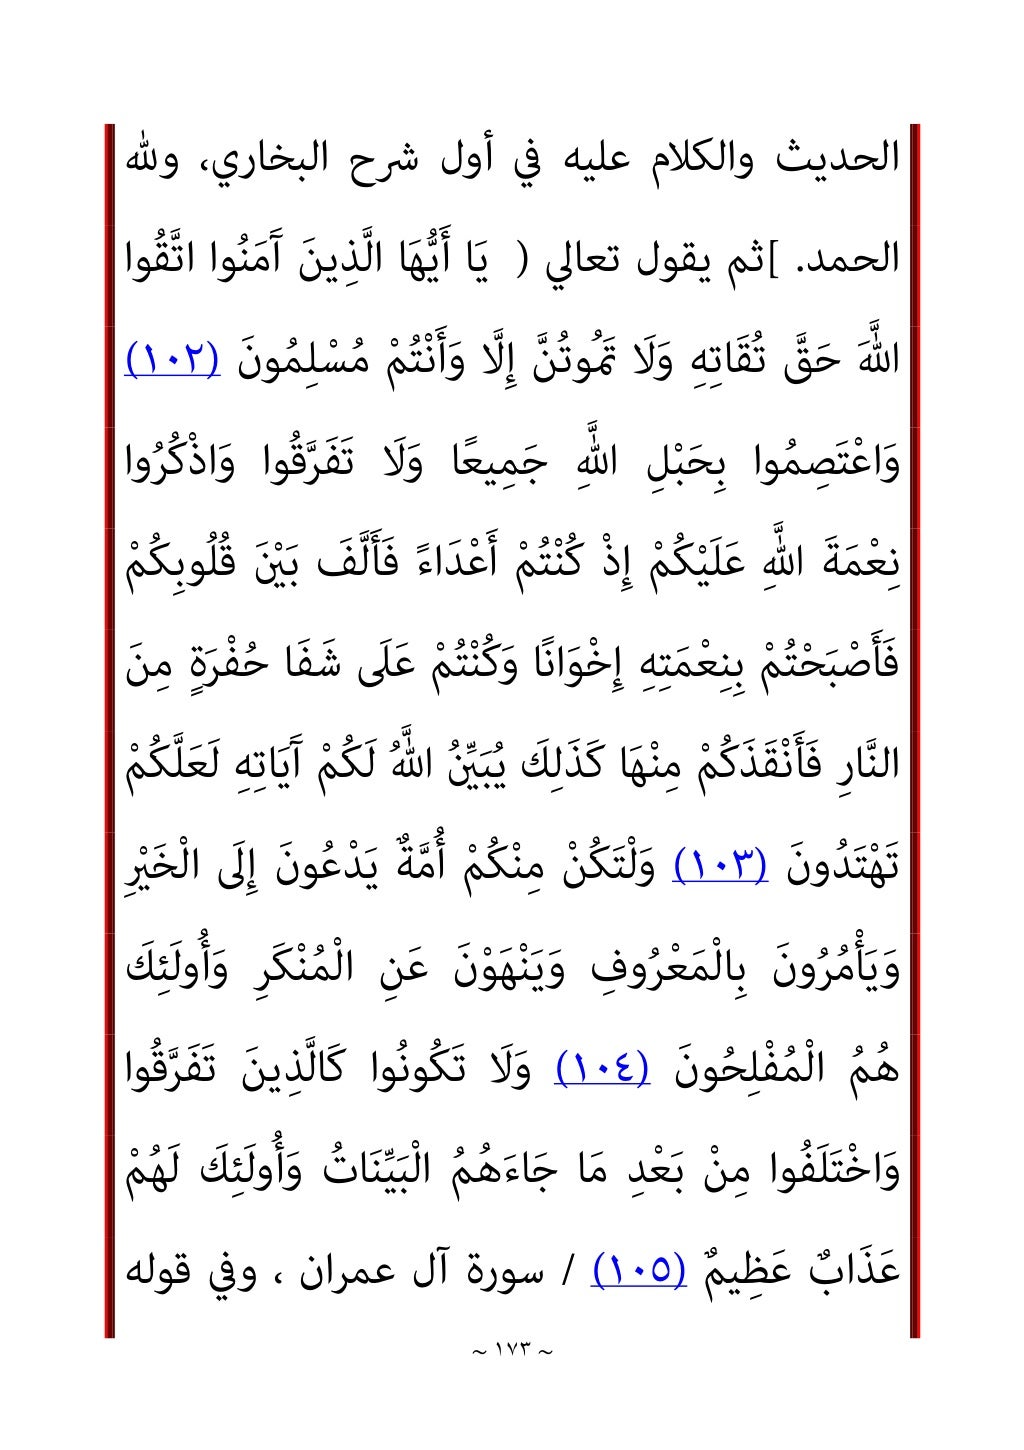 الحديث والكلام عليه في أول شرح البخاري، ولله
الحمد. ]ثم يقول تعالي ( يَا أَيُّهَا الَّذِينَ آَمَنُوا اتَّقُوا
اللَّهَ حَقَّ تُقَاتِهِ وَلَا تَمُوتُنَّ إِلَّا وَأَنْتُمْ مُسْلِمُونَ (١٠٢)
وَاعْتَصِمُوا بِحَبْلِ اللَّهِ جَمِيعًا وَلَا تَفَرَّقُوا وَاذْكُرُوا
نِعْمَةَ اللَّهِ عَلَيْكُمْ إِذْ كُنْتُمْ أَعْدَاءً فَأَلَّفَ بَيْنَ قُلُوبِكُمْ
فَأَصْبَحْتُمْ بِنِعْمَتِهِ إِخْوَانًا وَكُنْتُمْ عَلَى شَفَا حُفْرَةٍ مِنَ
النَّارِ فَأَنْقَذَكُمْ مِنْهَا كَذَلِكَ يُبَيِّنُ اللَّهُ لَكُمْ آَيَاتِهِ لَعَلَّكُمْ
تَهْتَدُونَ (١٠٣) وَلْتَكُنْ مِنْكُمْ أُمَّةٌ يَدْعُونَ إِلَى الْخَيْرِ
وَيَأْمُرُونَ بِالْمَعْرُوفِ وَيَنْهَوْنَ عَنِ الْمُنْكَرِ وَأُولَئِكَ
هُمُ الْمُفْلِحُونَ (١٠٤) وَلَا تَكُونُوا كَالَّذِينَ تَفَرَّقُوا
وَاخْتَلَفُوا مِنْ بَعْدِ مَا جَاءَهُمُ الْبَيِّنَاتُ وَأُولَئِكَ لَهُمْ
عَذَابٌ عَظِيمٌ (١٠٥) / سورة آل عمران ، وفي قوله
~ ١٧٣ ~